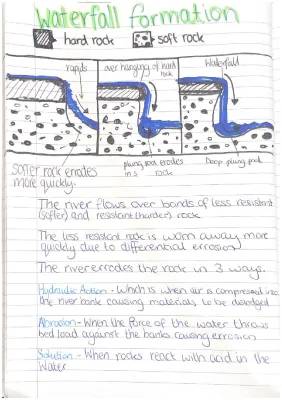 Waterfall formation
hard rock
soft rock
rapids
over hanging of hard
rock
Waterfall
Softer rock errodes
more quickly.
plung pool erodes
rock
Deep plung pool
The river flows over bands of less resistant
(softer) and resistant (harder) rock
The less resistant rock is worn away more
quickly due to differential erosion
The river errodes the rock in 3 ways.
Hydraulic Action - Which is when air is compressed into
the river bank causing materials to be dislodged
Abrasion - When the force of the water throws
bed load against the banks causing erosion
Solution - When rocks react with acid in the
water